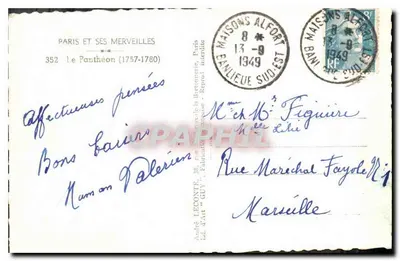 PARIS ET SES MERVEILLES
352 Le Panthéon (1757-1780)
Affectueuses pensées
Bons baisers
Maman Valérien
MAISONS ALFORT
8 *
13-9
1949
BANLIEUE SUD-EST
MAISONS ALFORT
8 *
13-9
1949
BANLIEUE SUD-EST
Mme et Mr Figuière
Rue Maréchal Fayolle N° 1
Marseille
ANDRÉ LECONTE